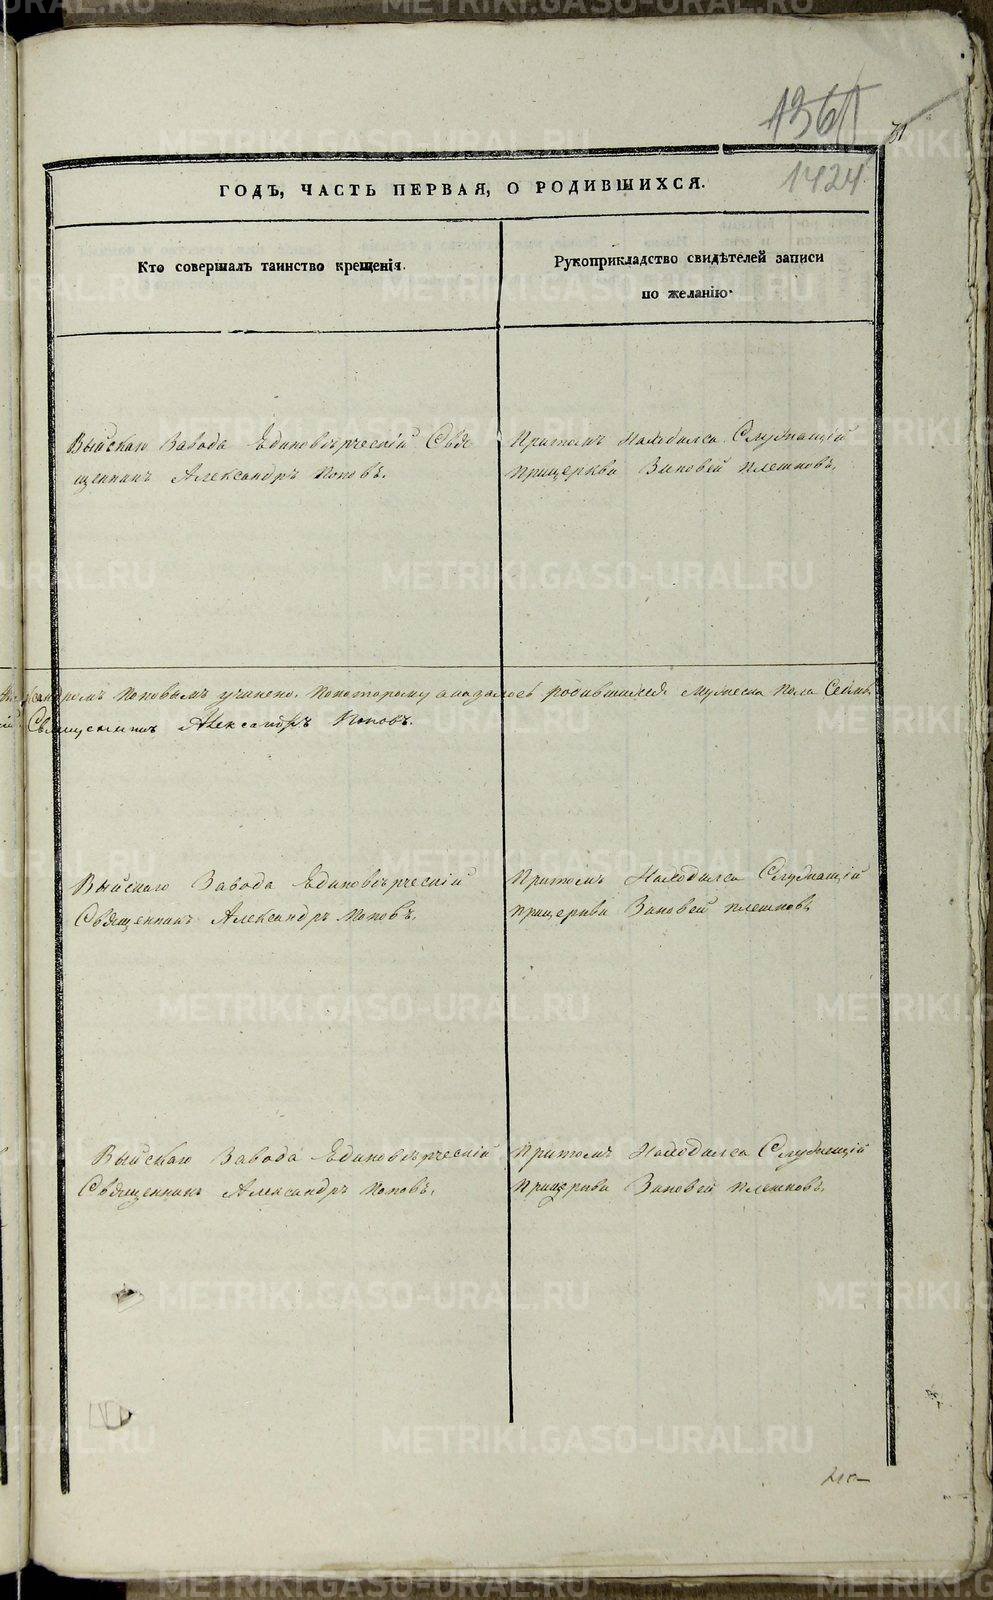 1361
71
1424
ГОДЪ, ЧАСТЬ ПЕРВАЯ, О РОДИВШИХСЯ.
Кто совершалъ таинство крещенія.
Рукоприкладство свидѣтелей записи
по желанію.
Выйскаго Завода Единовѣрческій Свя
щенникъ Александръ Поповъ.
Притомъ Находился Служащій
Прицеркви Зиновей Плешковъ.
Поповымъ учинено. Покоторому оказалось родившихся мужеска пола Семь
Священникъ Александръ Поповъ.
Выйскаго Завода Единовѣрческій
Священникъ Александръ Поповъ.
Притомъ Находился Служащій
Прицеркви Зиновей Плешковъ
Выйскаго Завода Единовѣрческій
Священникъ Александръ Поповъ.
Притомъ Находился Служащій
Прицеркви Зиновей Плешковъ.
METRIKI.GASO-URAL.RU